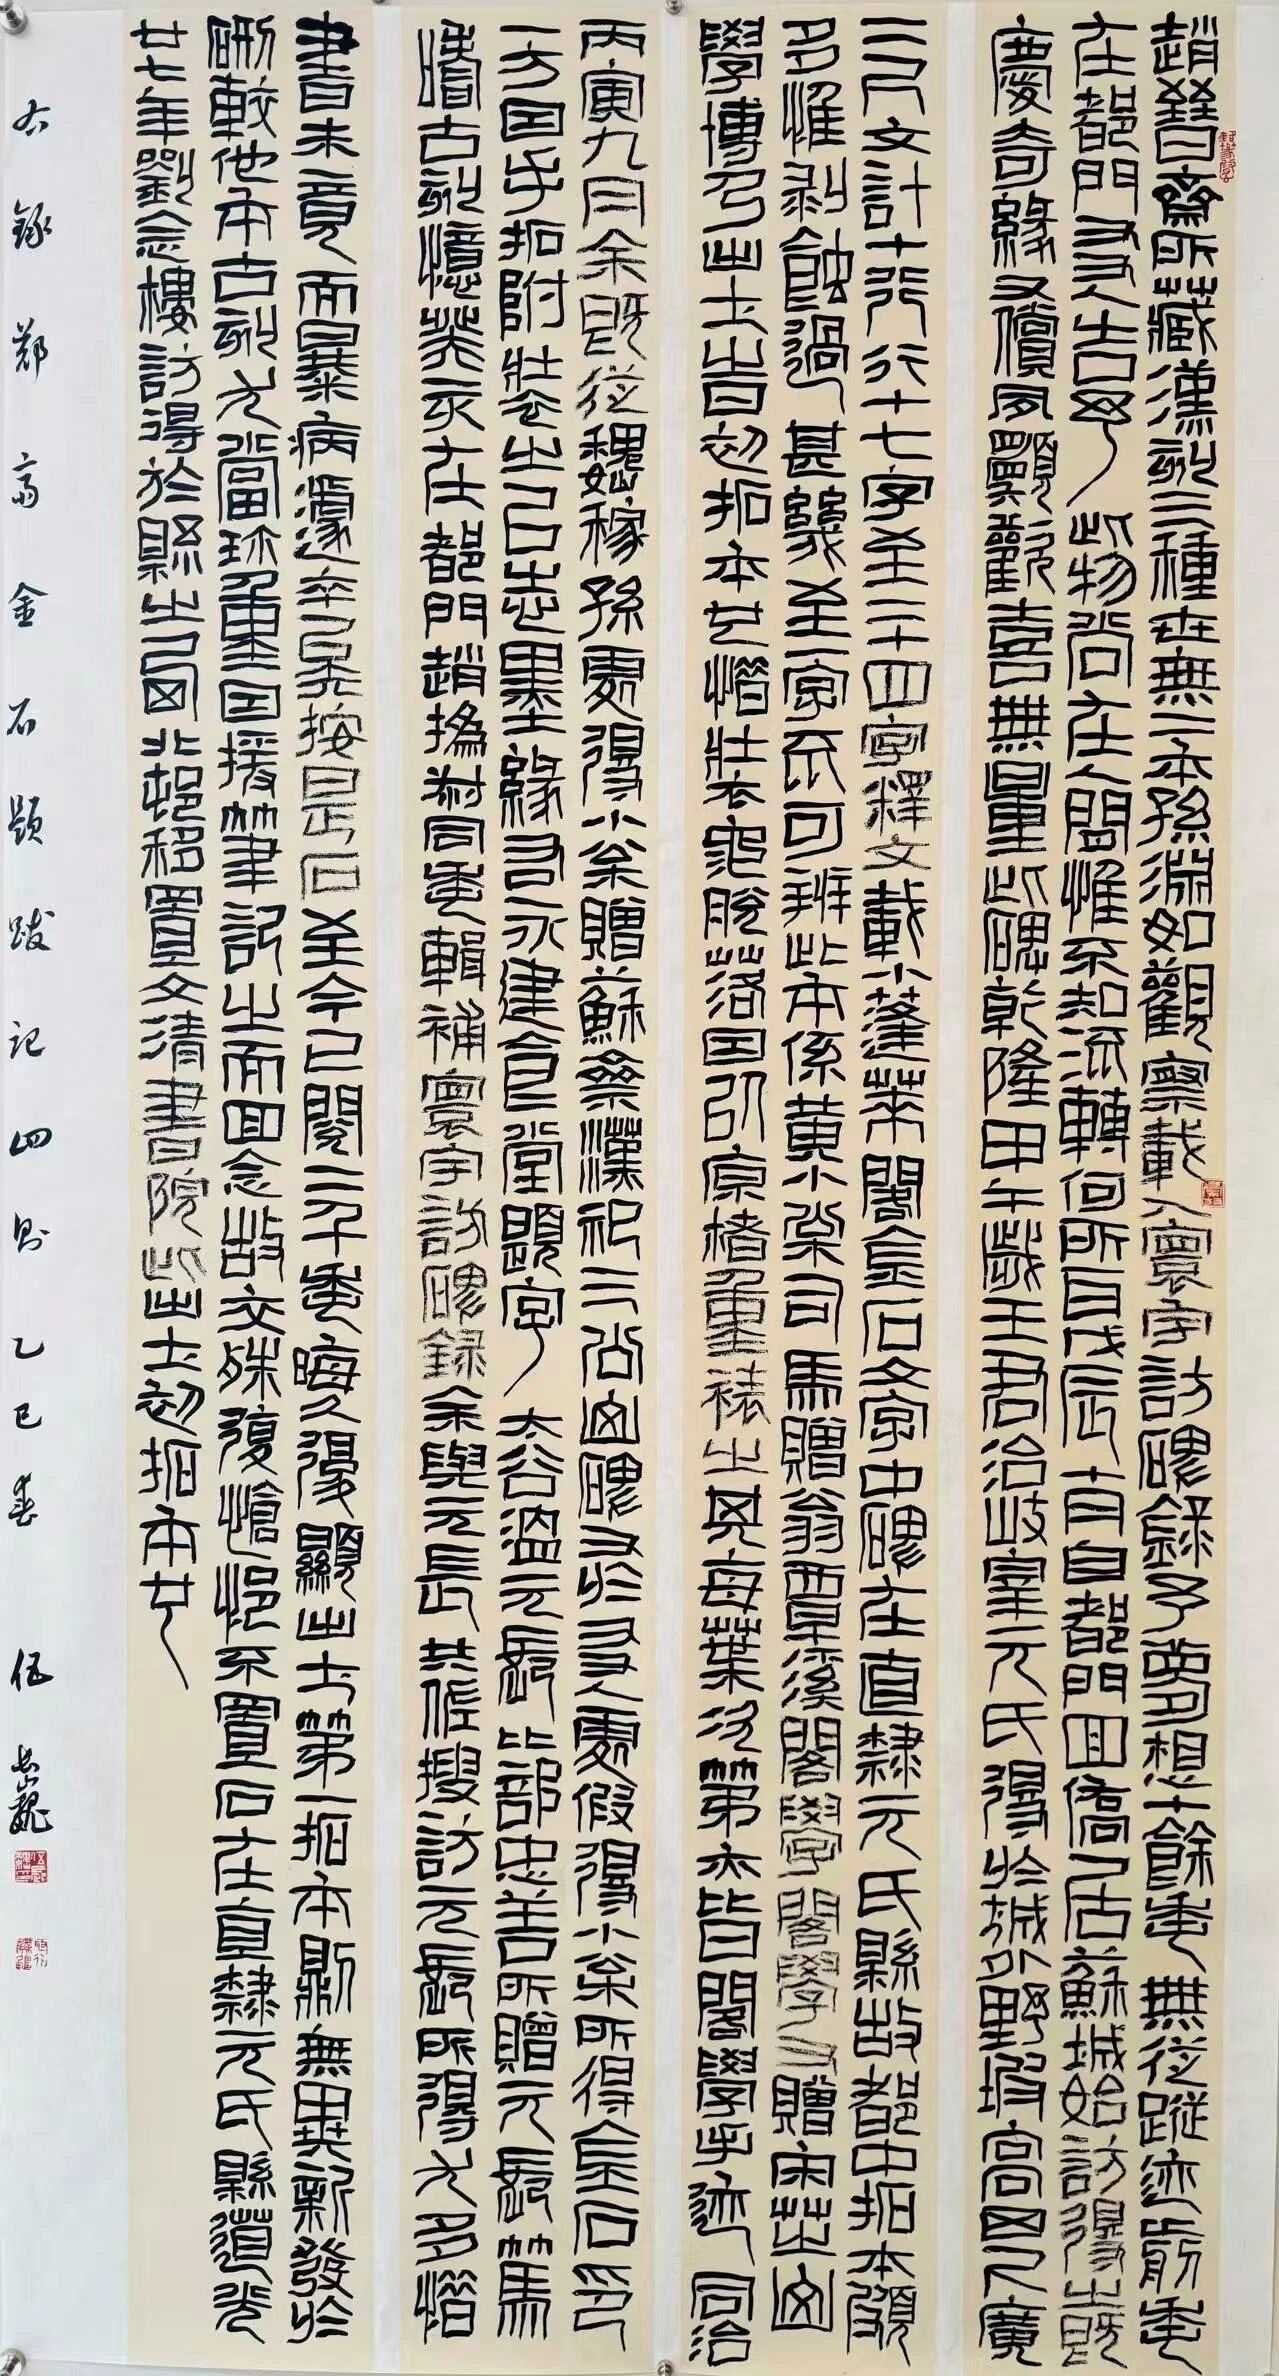 趙晉齋所藏漢刻三種世無二本孫淵如觀察載入寰宇訪碑錄予夢想十餘年無從蹤迹前年
在都門又人告予此物尚在人間惟不知流轉何所自戊辰十月自都門回僑居蘇城始訪得之既
慶奇緣又償夙願歡喜無量此碑乾隆甲午歲王君治岐宰元氏得於城外野坡高四尺廣
二尺文計十行行十七字至二十四字釋文載小蓬萊閣金石文字中碑在直隸元氏縣故都中拓本頗
多惟剝蝕過甚幾至一字不可辨此本係黃小松司馬贈翁覃溪閣學閣學又贈宋芝山
學博乃出土時初拓本也惜裝衣脫落因以原楮重裱之其每葉次第亦皆閣學手迹同治
丙寅九月余既從魏稼孫處得小松贈蘇齋漢祀三公山碑又於人處假得小松所得金石印
一方因手拓附裝之以志墨緣有永建食堂題字太谷溫元長比部忠善所贈元長篤
嗜古刻憶癸亥在都門趙撝叔同年輯補寰宇訪碑錄余與元長共佐搜訪元長所得尤多惜
書未竟而暴病遽卒矣按是石至今已閱二千年晦久復顯出土第一拓本
較他本古刻尤當珍重因援筆記之而回念故交殊復愴悒不置石在直隸元氏縣道光
廿七年劉念樓訪得於縣之西北邨移置文清書院此出土初拓本也
右錄鄭齋金石題跋記四則乙巳春伍